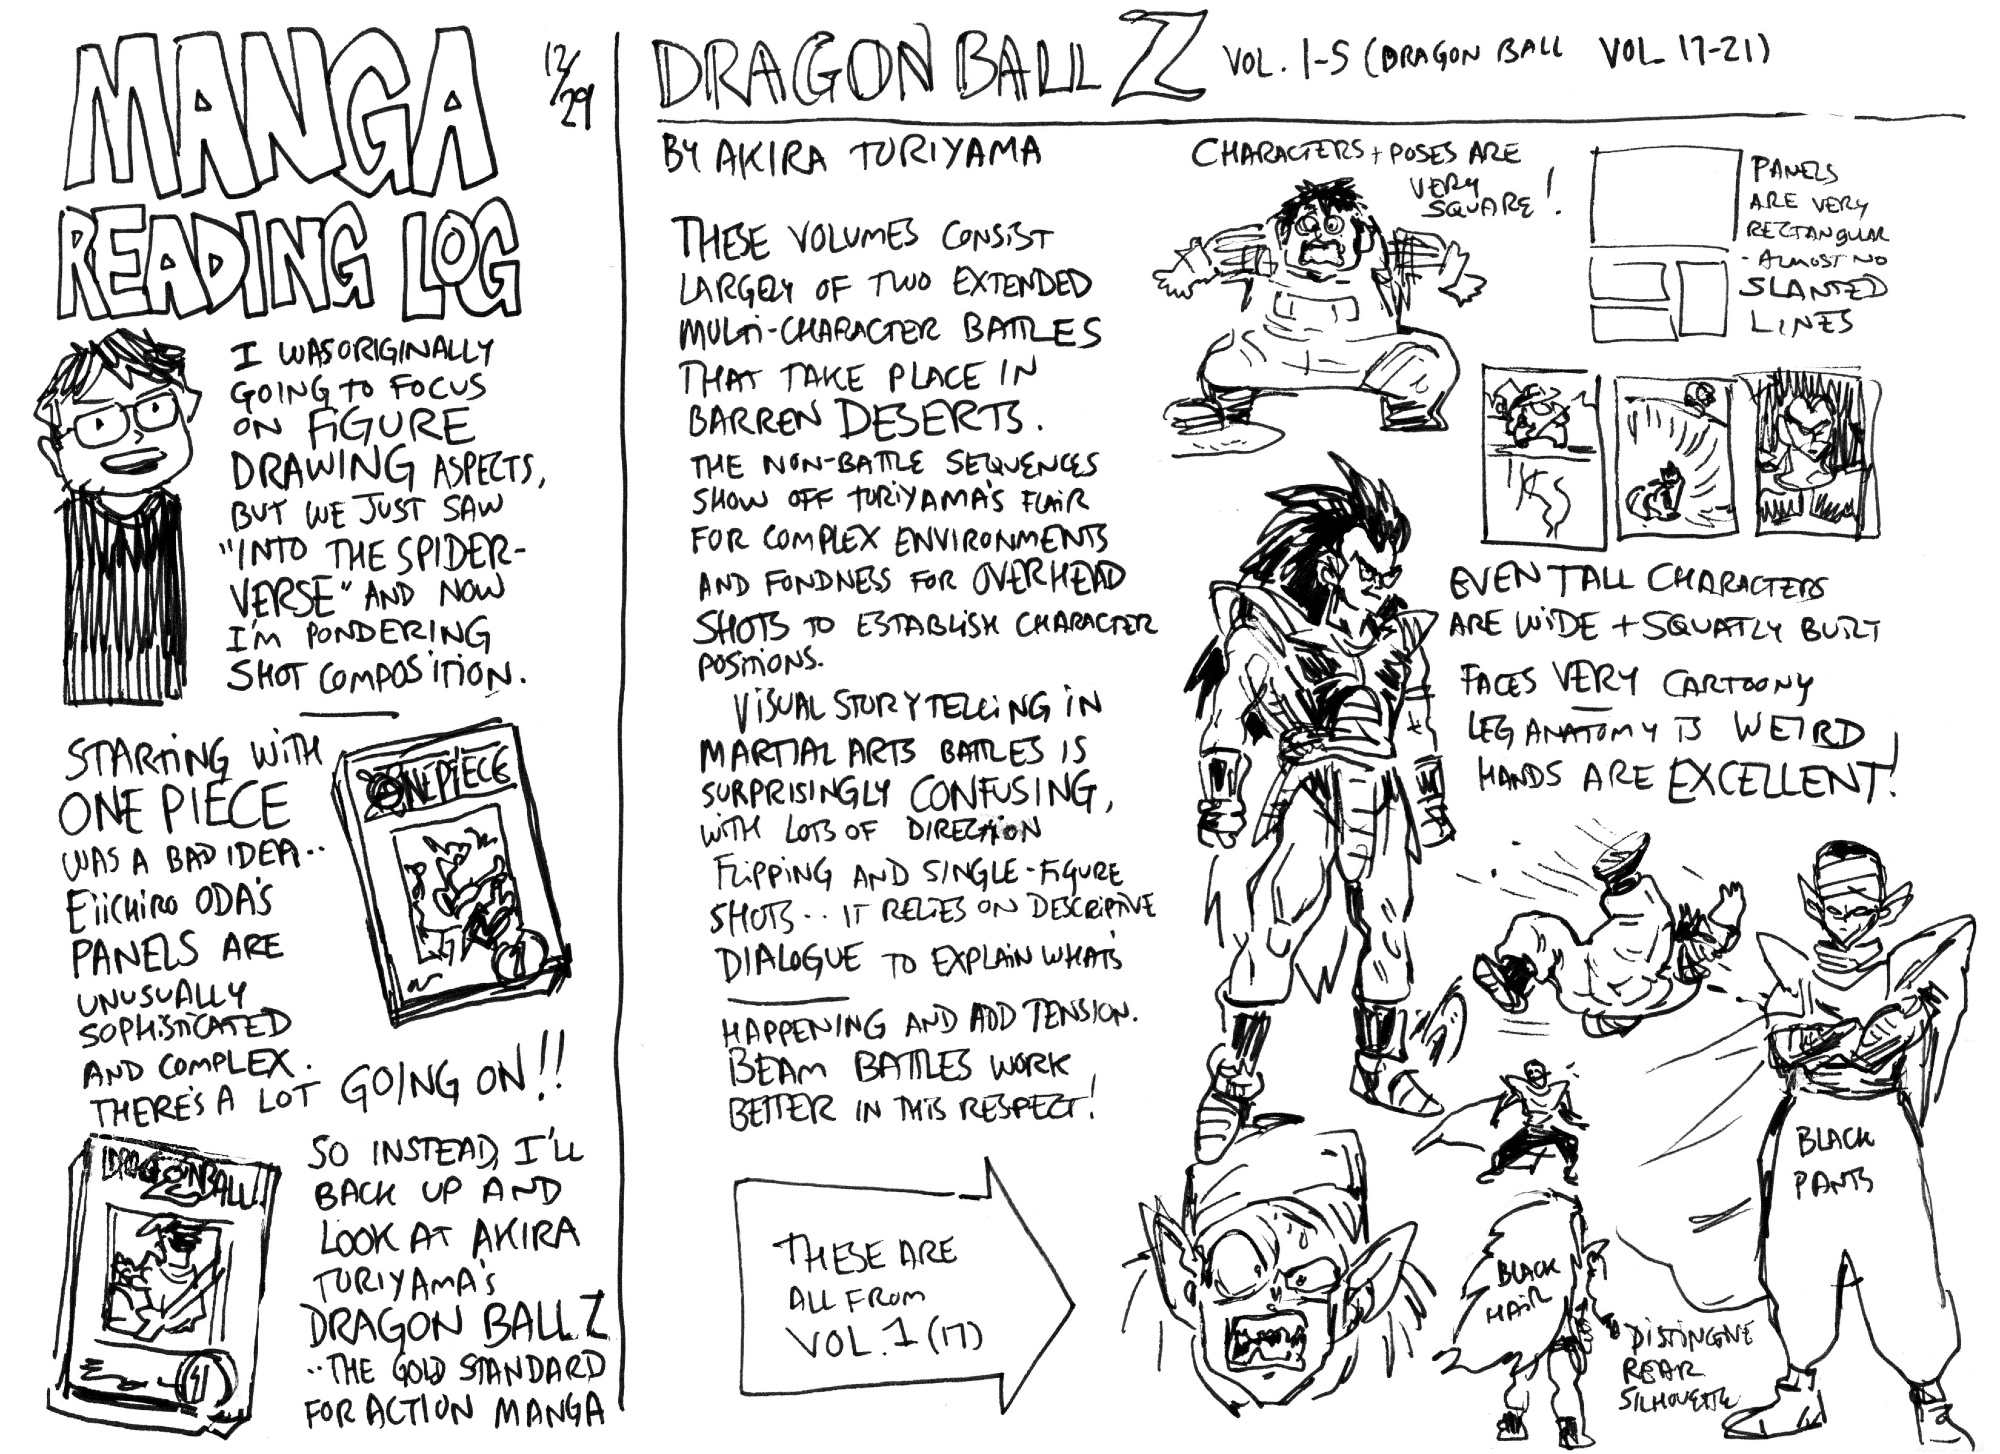 MANGA
READING LOG
12/29
I WAS ORIGINALLY
GOING TO FOCUS
ON FIGURE
DRAWING ASPECTS,
BUT WE JUST SAW
"INTO THE SPIDER-
VERSE" AND NOW
I'M PONDERING
SHOT COMPOSITION.
STARTING WITH
ONE PIECE
WAS A BAD IDEA..
EIICHIRO ODA'S
PANELS ARE
UNUSUALLY
SOPHISTICATED
AND COMPLEX.
THERE'S A LOT GOING ON!!
ONE PIECE
1
DRAGON BALL
Z
1
SO INSTEAD, I'LL
BACK UP AND
LOOK AT AKIRA
TORIYAMA'S
DRAGON BALL Z
..THE GOLD STANDARD
FOR ACTION MANGA
DRAGON BALL Z VOL. 1-5 (DRAGON BALL VOL. 17-21)
BY AKIRA TORIYAMA
THESE VOLUMES CONSIST
LARGELY OF TWO EXTENDED
MULTI-CHARACTER BATTLES
THAT TAKE PLACE IN
BARREN DESERTS.
THE NON-BATTLE SEQUENCES
SHOW OFF TORIYAMA'S FLAIR
FOR COMPLEX ENVIRONMENTS
AND FONDNESS FOR OVERHEAD
SHOTS TO ESTABLISH CHARACTER
POSITIONS.
VISUAL STORYTELLING IN
MARTIAL ARTS BATTLES IS
SURPRISINGLY CONFUSING,
WITH LOTS OF DIRECTION
FLIPPING AND SINGLE-FIGURE
SHOTS.. IT RELIES ON DESCRIPTIVE
DIALOGUE TO EXPLAIN WHAT'S
HAPPENING AND ADD TENSION.
BEAM BATTLES WORK
BETTER IN THIS RESPECT!
THESE ARE
ALL FROM
VOL. 1 (17)
CHARACTERS + POSES ARE
VERY
SQUARE!
PANELS
ARE VERY
RECTANGULAR
- ALMOST NO
SLANTED
LINES
EVEN TALL CHARACTERS
ARE WIDE + SQUATLY BUILT
FACES VERY CARTOONY
LEG ANATOMY IS WEIRD
HANDS ARE EXCELLENT!
BLACK
PANTS
BLACK
HAIR
DISTINCTIVE
REAR
SILHOUETTE